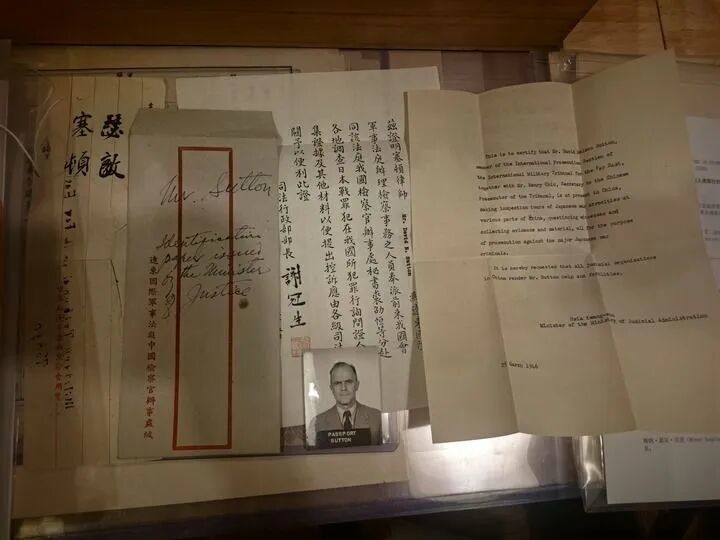 塞頓
Mr. Sutton
Identification
paper issued
by the Minister
of
Justice
遠東國際軍事法庭中國檢察官辦事處緘
茲證明塞頓律師
軍事法庭辦理檢察事務之人員奉派前來我國會
同該法庭我國檢察官辦事處秘書裘劭恒等分赴
各地調查日本戰罪犯在我國所犯罪行詢問證人
集證據及其他材料以便提出控訴應由各級司
關予以便利此證
司法行政部部長 謝冠生
PASSPORT
SUTTON
This is to certify that Mr. David Nelson Sutton,
member of the International Prosecution Section of
the International Military Tribunal for the Far East,
together with Mr. Henry Chiu, Secretary to the Chinese
Prosecutor of the Tribunal, is at present in China,
making inspection tours of Japanese war atrocities at
various parts of China, questioning witnesses and
collecting evidence and material, all for the purpose
of prosecution against the major Japanese war
criminals.
It is hereby requested that all judicial organizations
in China render Mr. Sutton help and facilities.
Hsia
Minister of the Ministry of Judicial Administration
March 1946